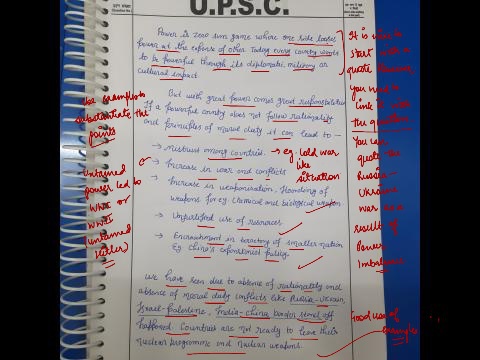 U.P.S.C.
Power is zero sum game where one side loses
power at the expense of other. Today every country wants
to be powerful through its diplomatic, military or
cultural impact.
But with great power comes great responsibilities
If a powerful country does not follow rationality
and principles of moral duty it can lead to -
- Mistrust among countries. → eg. Cold war
like
situation
- Increase in war and conflicts
- Increase in weaponization, Hoarding of
weapons for eg Chemical and biological weapon
- Unjustified use of resources
- Encroachment in teratory of smaller nation
Eg China's expansionist policy.
We have seen due to absence of rationality and
absence of moral duty conflicts like Russia-Ukrain,
Israel-palestine, India-China border stand off
happened. Countries are not ready to leave their
nuclear programme and nuclear weapons.
Use examples to
substantiate the
points
Untamed
power led to
WWI or
WWII
(untamed
Hitler)
It is wise to
start with a
quote
you need to
link it with
the question.
You can
quote the
Russia-
Ukraine
war as a
result of
Power
Imbalance
Good use of
examples